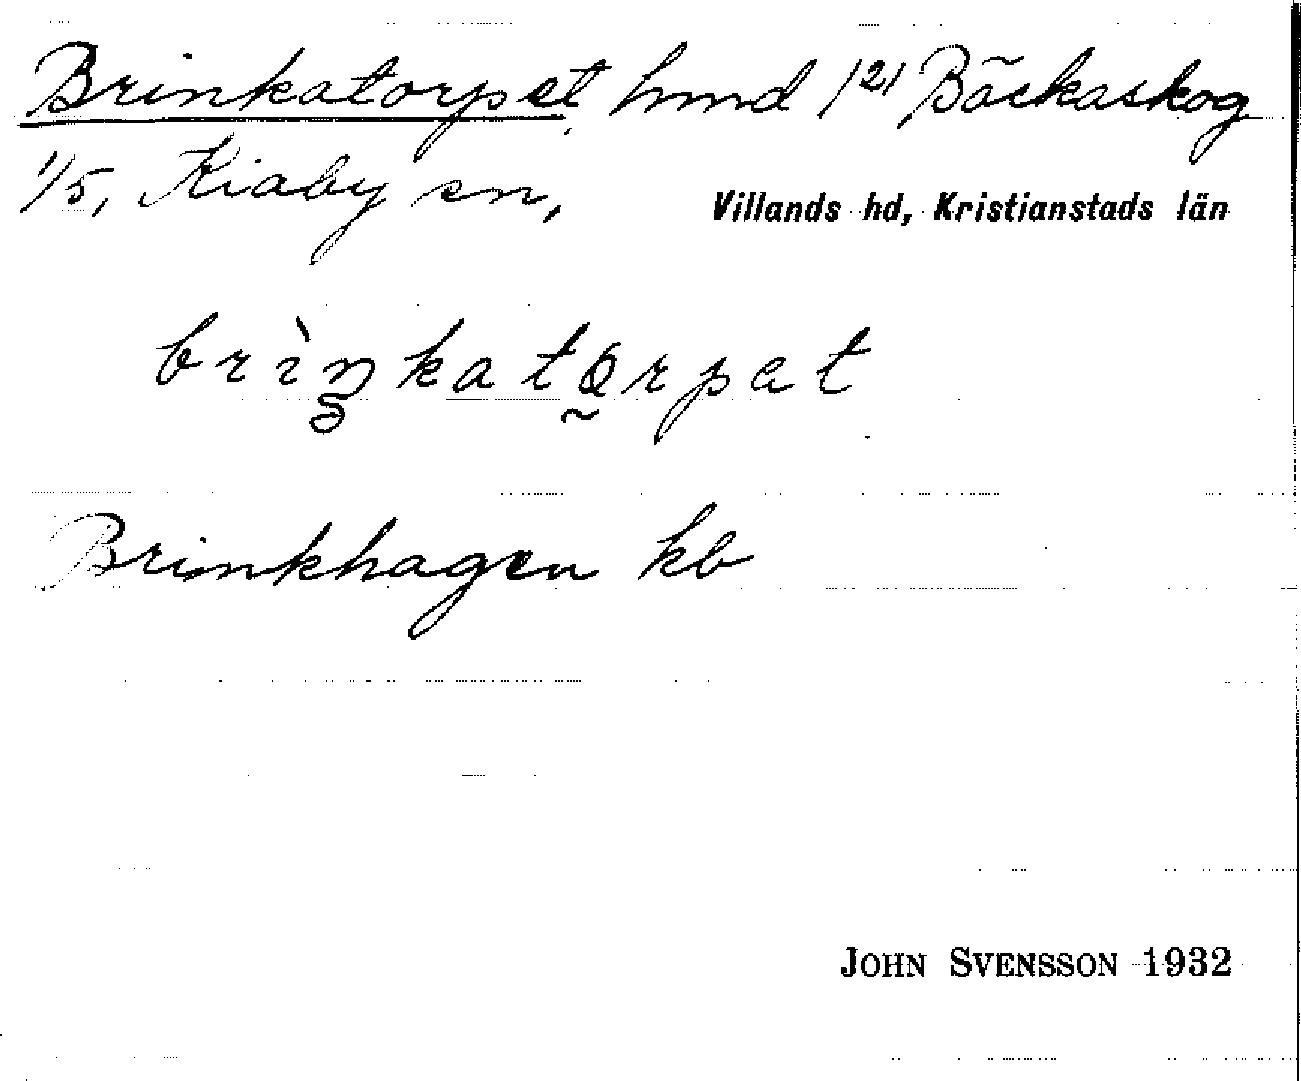 Brinkatorpet, hmd 1²¹ Bäckaskog
1/5, Kiaby sn,
Villands hd, Kristianstads län
brìŋkatɷrpet
Brinkhagen kb
JOHN SVENSSON 1932